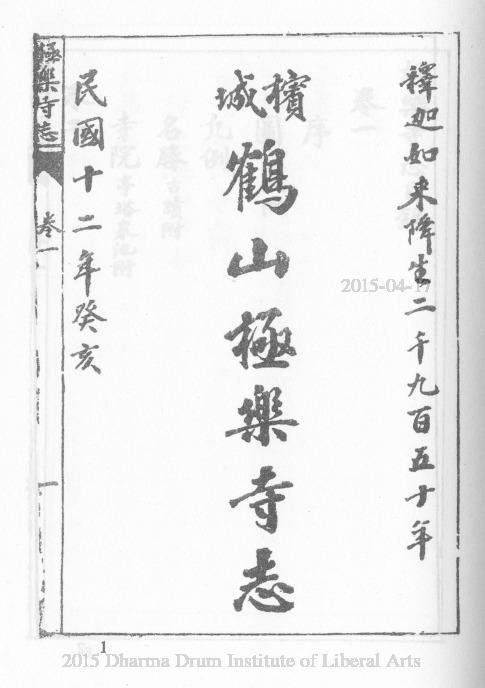 釋迦如來降生二千九百五十年
檳城
鶴山極樂寺志
民國十二年癸亥
極樂寺志
卷一
一
1
2015-04-17
2015 Dharma Drum Institute of Liberal Arts